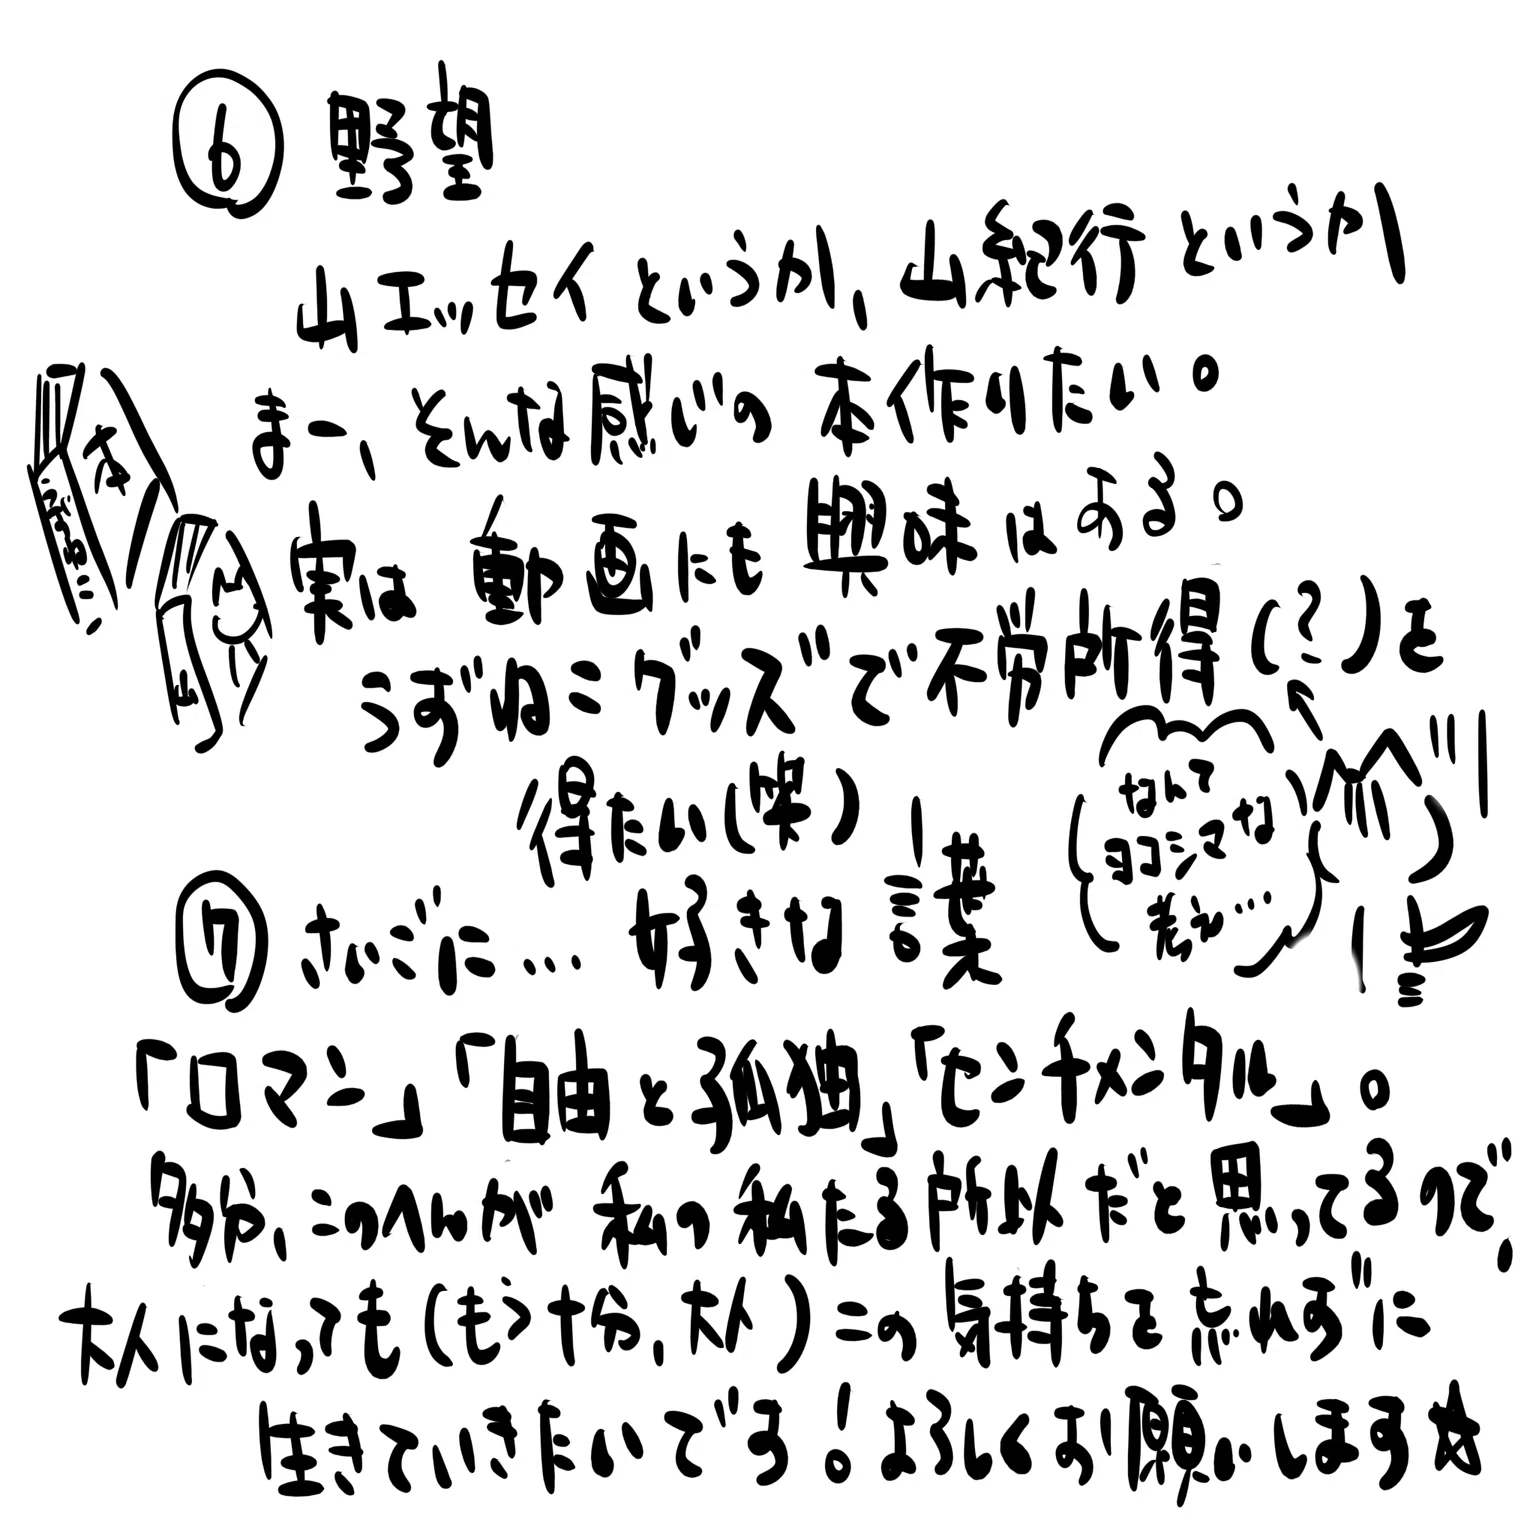 ⑥ 野望
山エッセイというか、山紀行というか
まー、そんな感じの本作りたい。
実は動画にも興味はある。
うずねこグッズで不労所得(?)を
得たい(笑)
本
山
なんて
ヨコシマな
考え…
⑦ さいごに… 好きな言葉
「ロマン」「自由と孤独」「センチメンタル」。
多分、このへんが私の私たる所以だと思ってるので、
大人になっても(もう十分、大人)この気持ちを忘れずに
生きていきたいです!よろしくお願いします☆